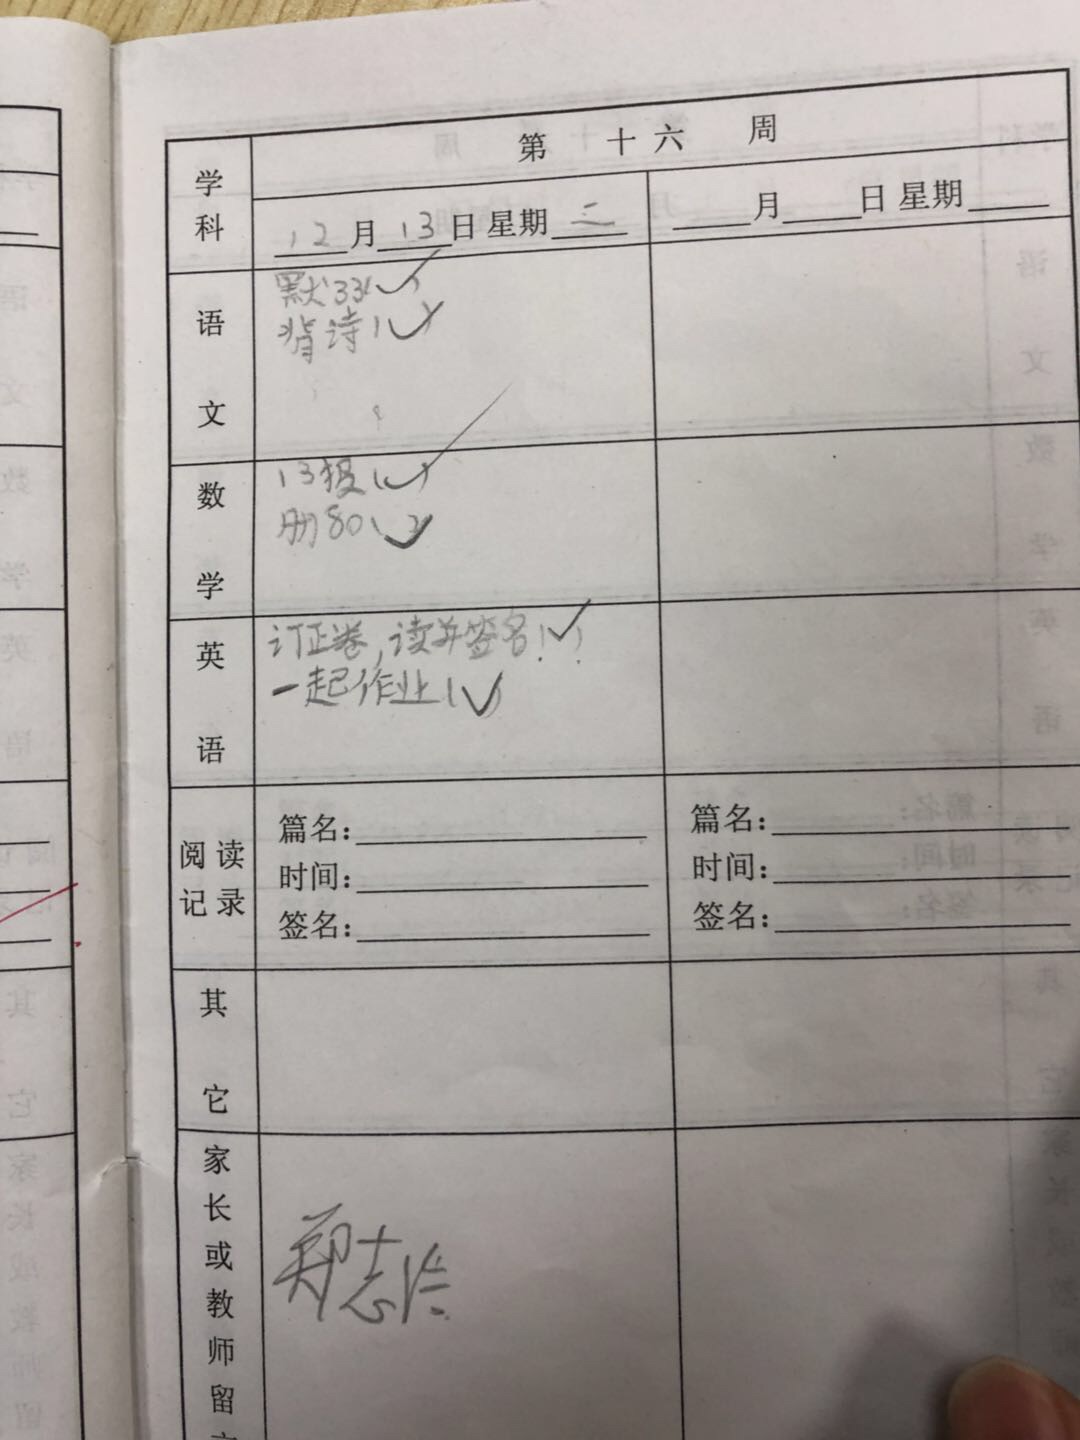 第 十 六 周
学科
12月13日 星期三
月 日 星期
语文
默33(
背诗
数学
13报
册80
英语
订正卷,读并签名!
一起作业
阅读记录
篇名:
时间:
签名:
篇名:
时间:
签名:
其它
家长或教师留
郑志